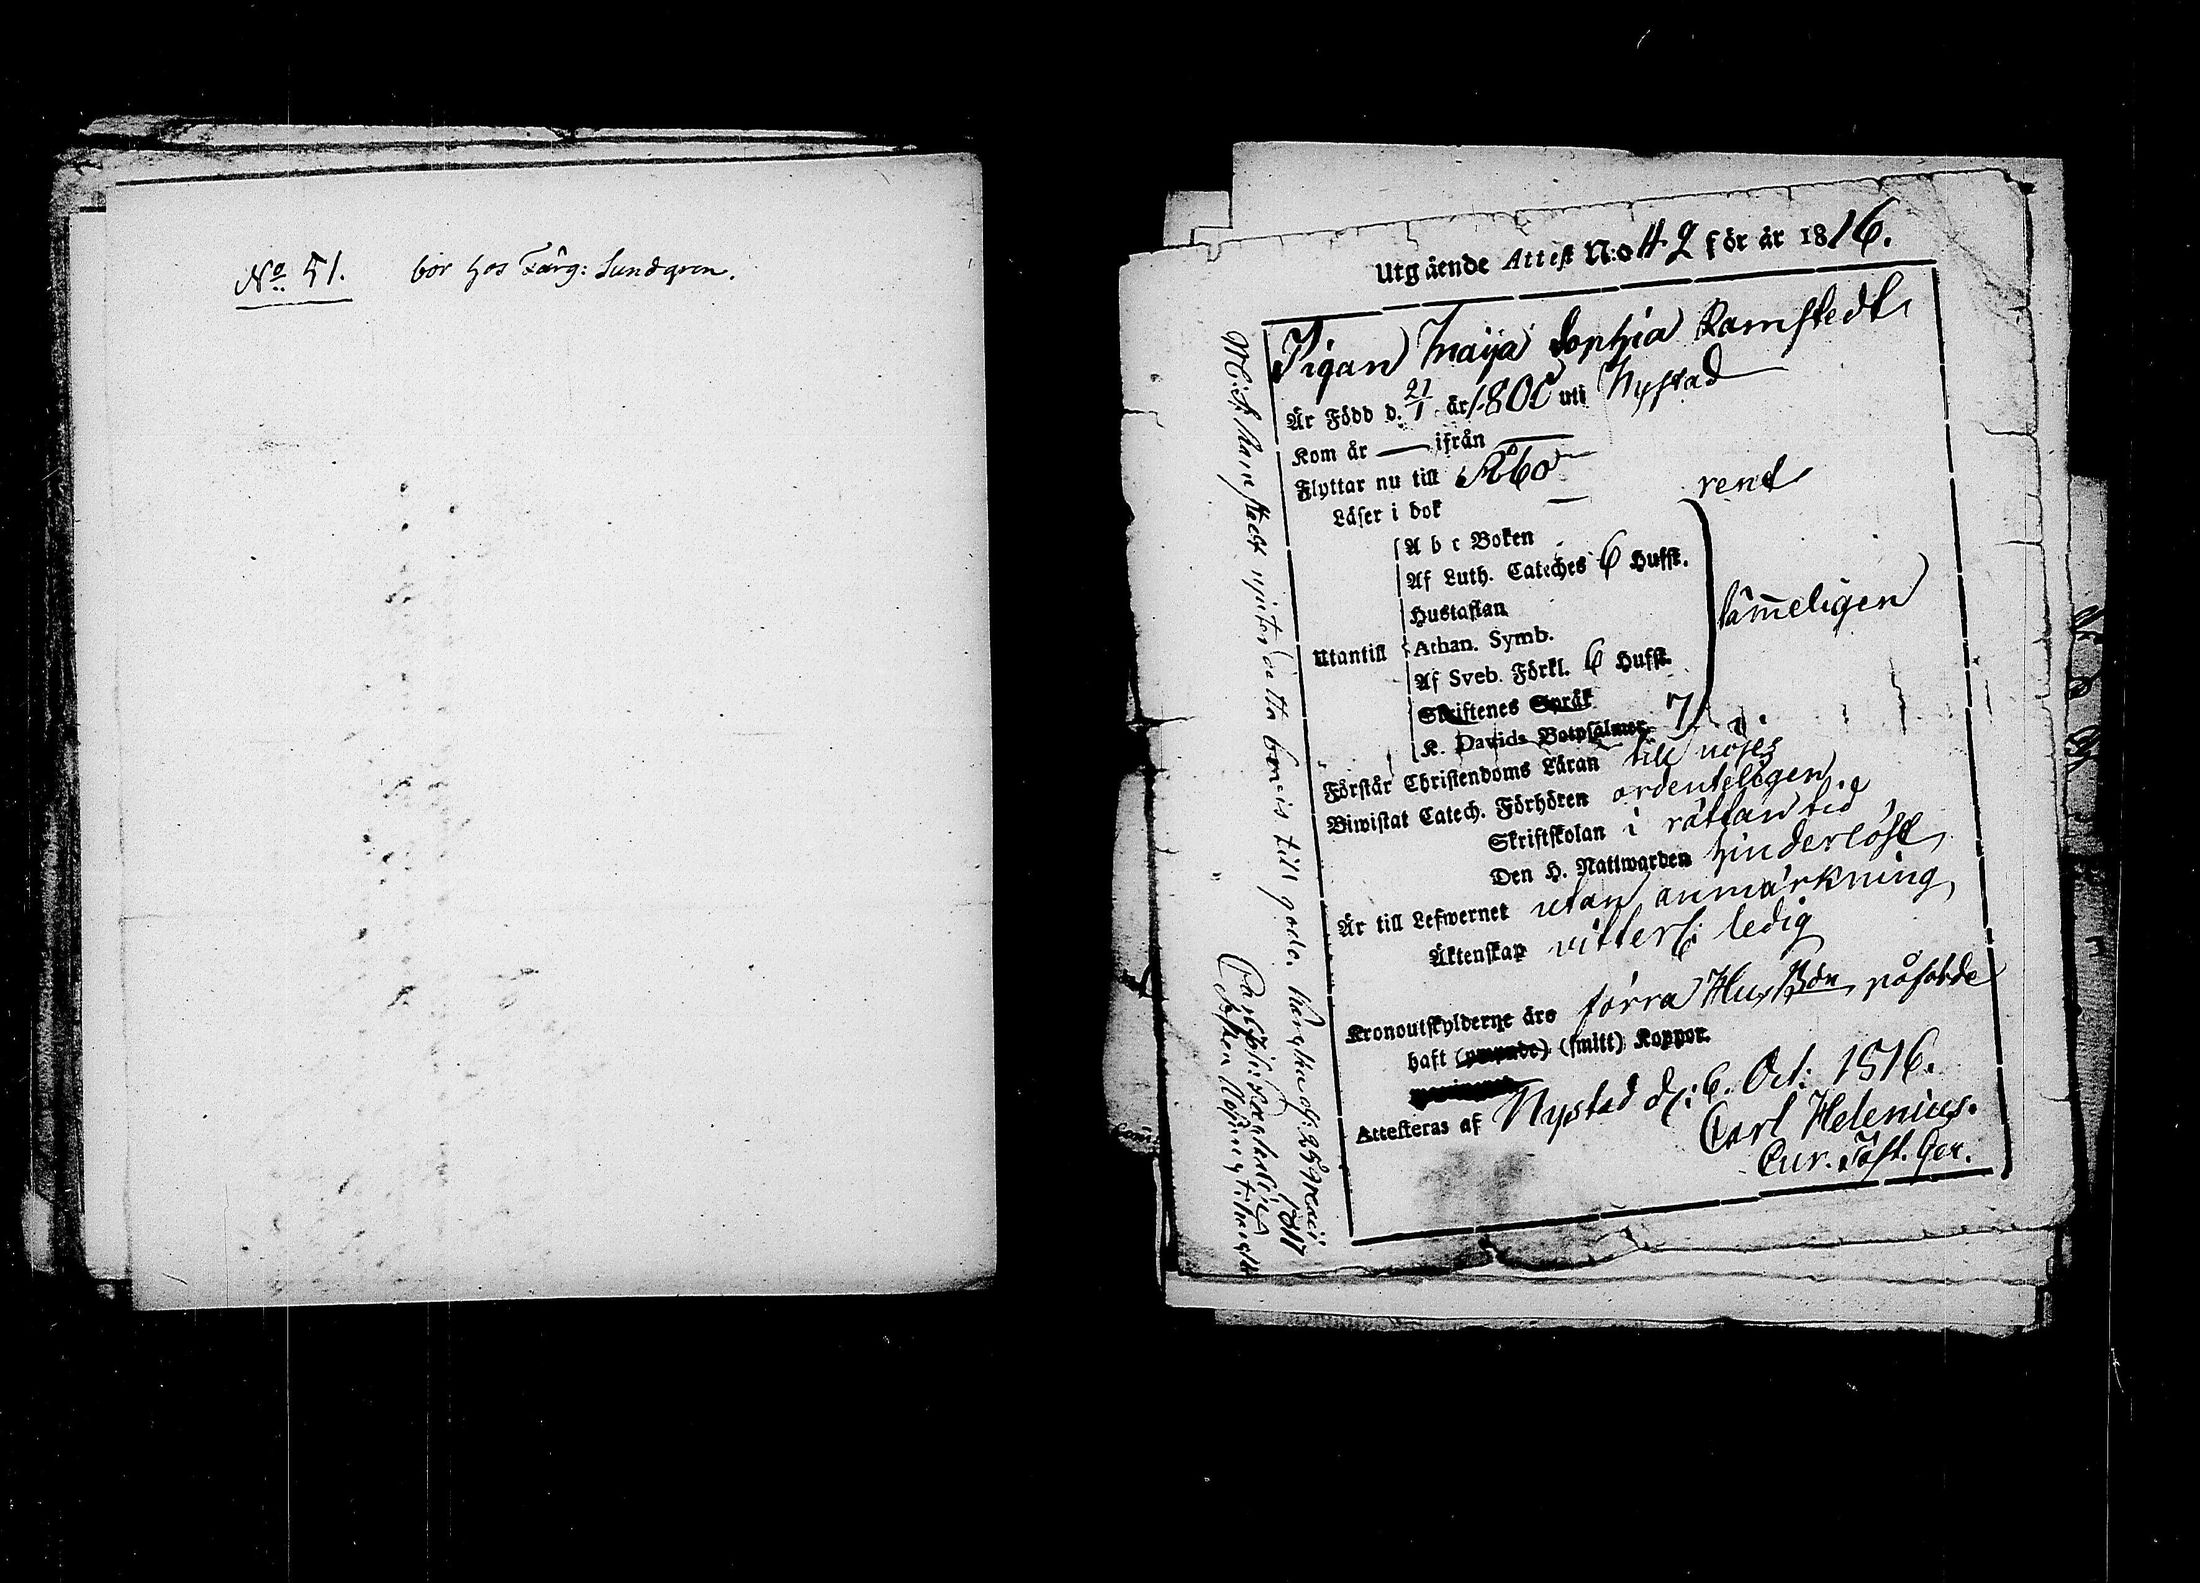 No 51. bor hos Färg: Sundgren.
Utgående Attest N:o 42 för år 1816.
Pigan Maija Sophia Ramstedt
Är Född d. 21/1 år 1800 uti Nystad
Kom år — ifrån —
Flyttar nu till Åbo
Läser i bok — rent
Utantill
A b c Boken
Af Luth. Catechés 6 Hufst.
Hustaflan
Athan. Symb.
Af Sveb. Förkl. 6 Hufst.
Skriftenes Språk
K. Davids Botpsalmer 7
sammeligen
Förstår Christendoms Läran till nöjes
Biwistat Catech. Förhören ordenteligen
Skriftskolan i rättan tid
Den H. Nattwarden hinderlöst
Är till Lefwernet utan anmärkning
Äktenskap vitterl: ledig
Kronoutskylderne äro förra Hus Bön påförde
haft (ympade) (smitt) Koppor.
Attesteras af Nystad d. 6. Oct: 1816.
Carl Helenius.
Cur. Past. Ger.
M: S. Ramstedt njuter detta bevis till godo. 25 Maii
1817